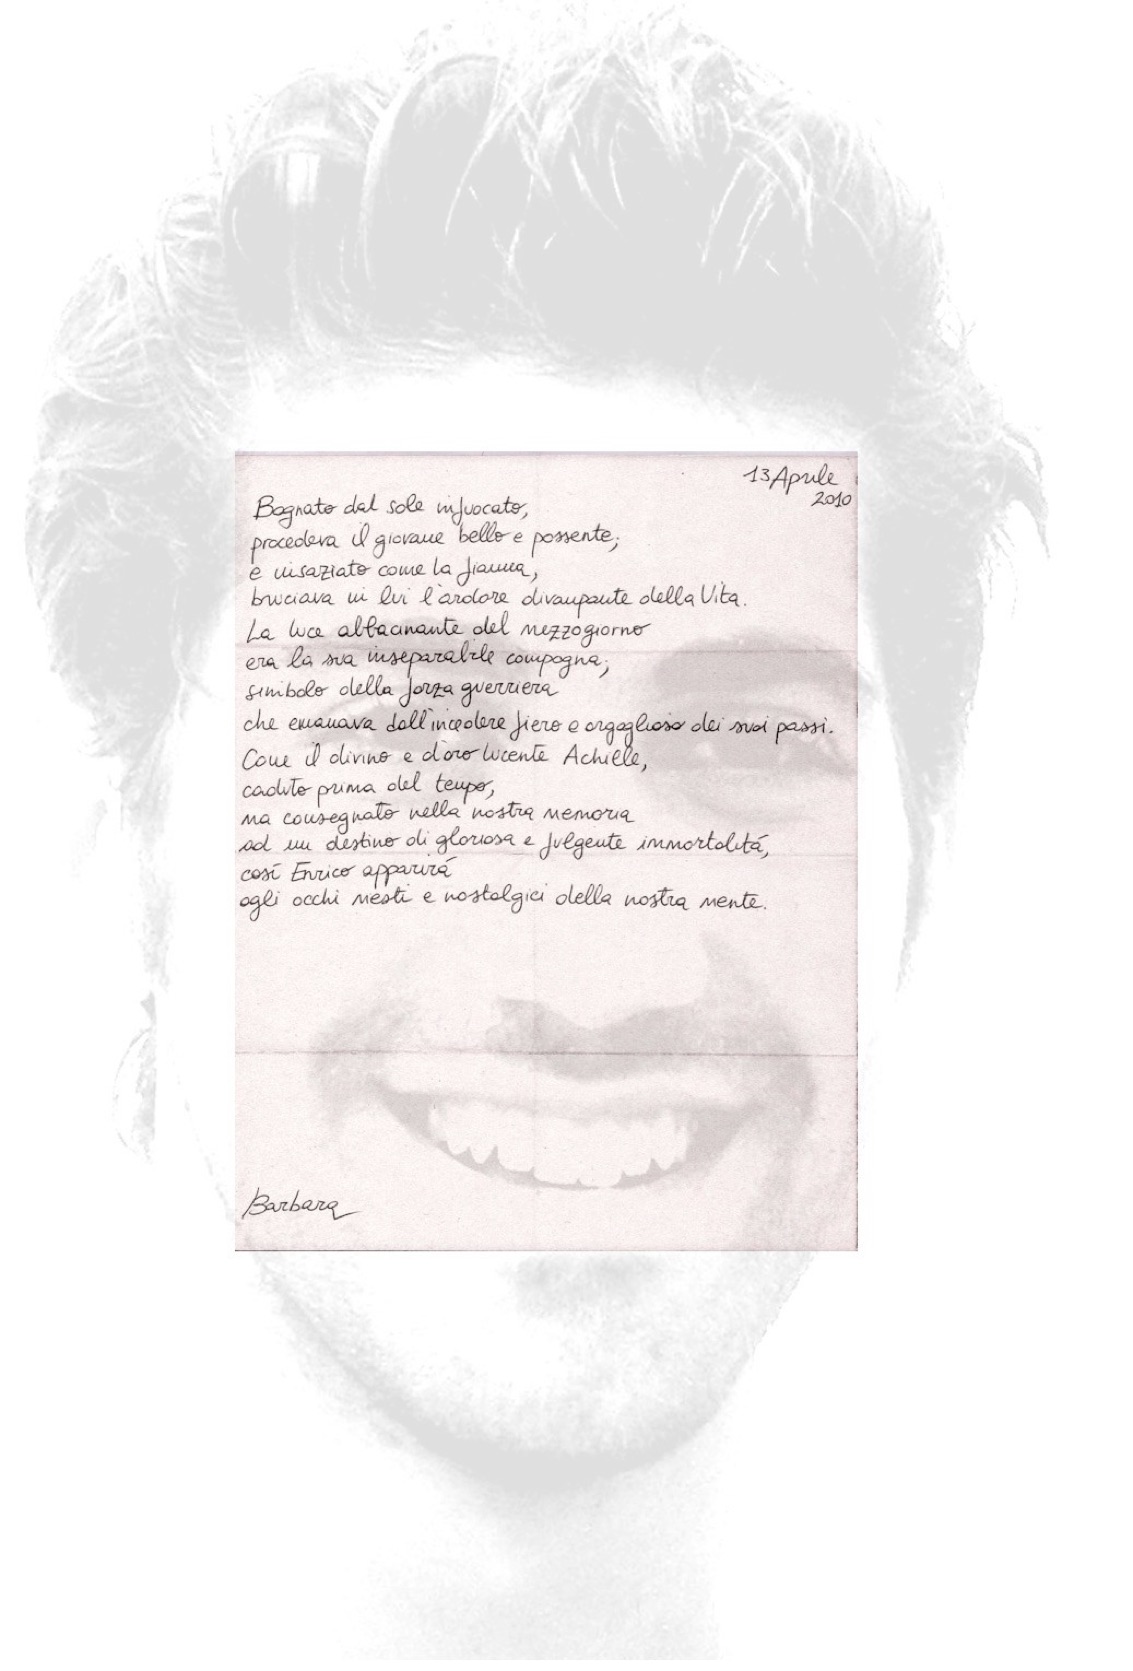 13 Aprile
2010
Bagnato dal sole infuocato,
procedeva il giovane bello e possente;
e insaziato come la fiamma,
bruciava in lui l'ardore divampante della Vita.
La luce abbacinante del mezzogiorno
era la sua inseparabile compagna;
simbolo della forza guerriera
che emanava dall'incedere fiero e orgoglioso dei suoi passi.
Come il divino e d'oro lucente Achille,
caduto prima del tempo,
ma consegnato nella nostra memoria
ad un destino di gloriosa e fulgente immortalitá,
cosí Enrico apparirá
agli occhi mesti e nostalgici della nostra mente.
Barbara